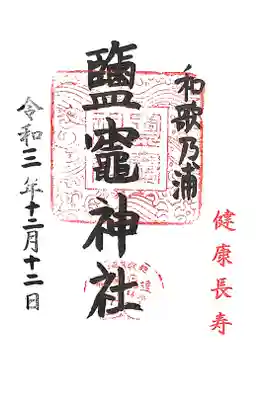 健康長寿
和歌乃浦
鹽竈神社
令和三年十二月十二日